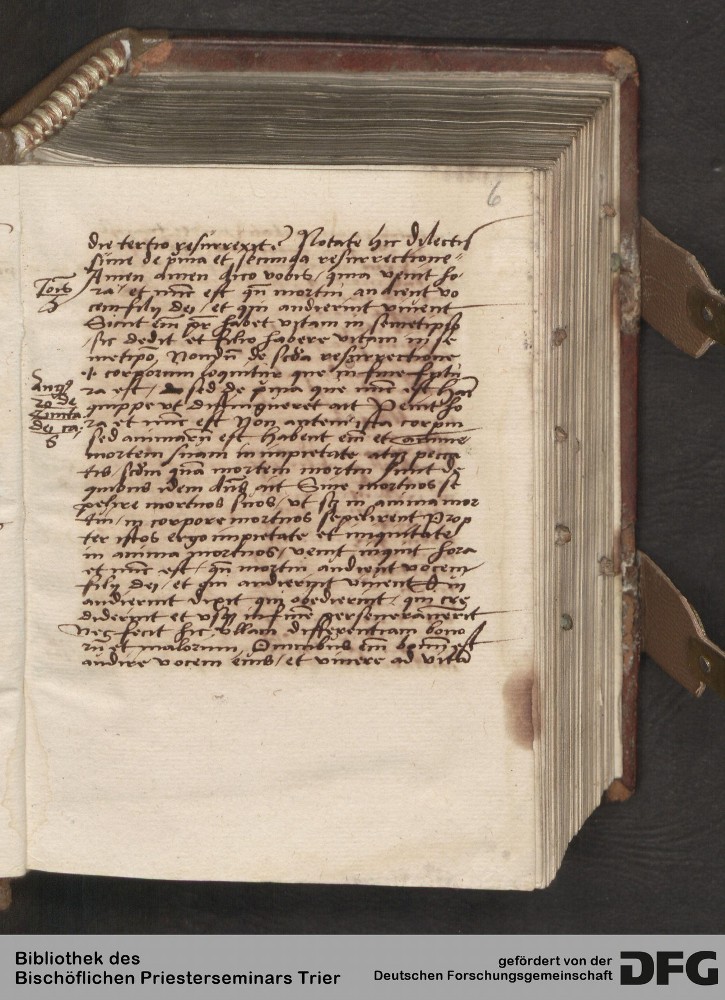 6
die tertio resurrexit? Notate hic dilectis
sime de p̄ma et secunda resurrectione
Amen amen dico vobis, quia venit ho-
ra, et nūc est qn̄ mortui audient vo
cem filij dei, et qui audierint vivent
Sicut em̄ pr̄ habet vitam in semetipso
sic dedit et filio habere vitam in se
metipō, Nondū de scd̄a resurrectione
corporum loquitur que in fine futu
ra est, sed de p̄ma que nūc est Hāc
quippe vt distingueret ait Venit ho
ra et nūc est Non autem ista corpm̄
sed animarū est habent em̄ et anime
mortem suam in impietate atq peccā
tis, scdm quā mortem mortui sunt de
quibus idem dn̄s ait Sine mortuos se
pelire mortuos suos, vt sꝫ in anima mor
tui, in corpore mortuos sepelirent Prop
ter istos ergo impietate et iniquitate
in anima mortuos, venit inquit hora
et nūc est, qn̄ mortui audient vocem
filij dei, et qui audierint vivent Q̄ui
audierint dixit qui obedierint, qui cre
diderint et vsq in finē perseveraverit
Neq fecit hic vllam differentiam bono
rū et malorum, Omnibus em̄ bonū est
audire vocem eius, et vivere ad vitā
Joīs
5
Augꝰ
20 de
civita.
dei ca.
6
Bibliothek des
Bischöflichen Priesterseminars Trier
gefördert von der
Deutschen Forschungsgemeinschaft
DFG